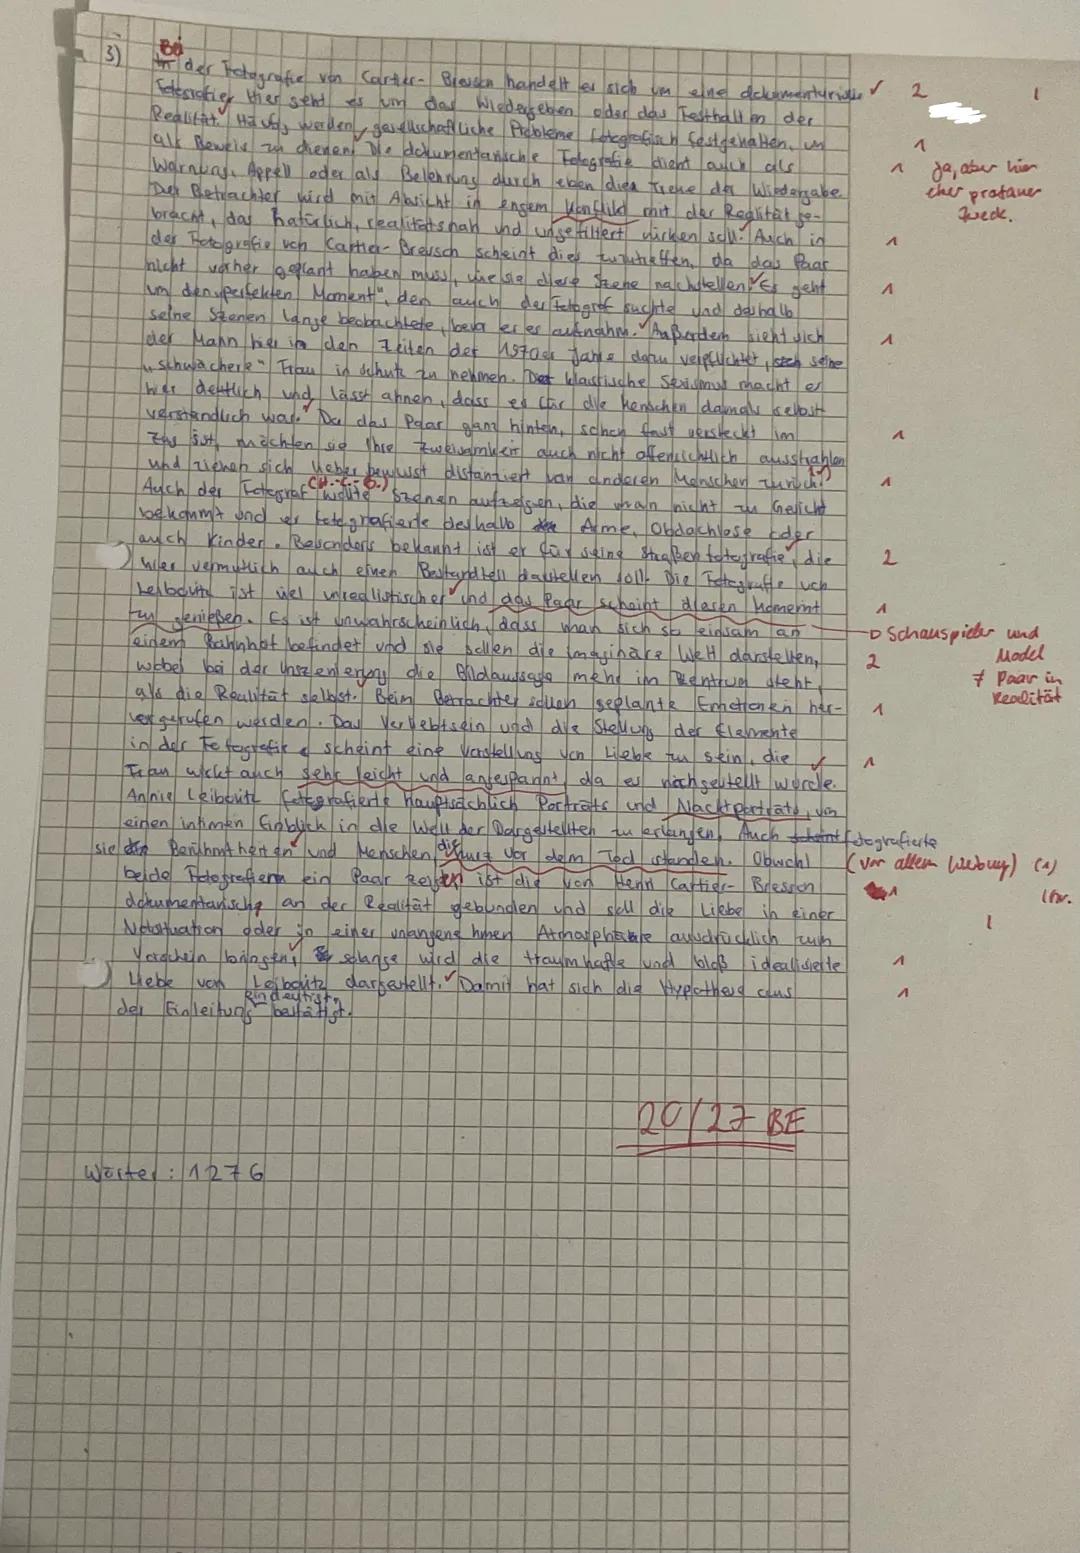 3) Bei der Fotografie von Cartier-Bresson handelt es sich um eine dokumentarische ✓ 2 1
Fotografie. Hier geht es um das Wiedergeben oder das Festhalten der
Realität. Häufig werden gesellschaftliche Probleme fotografisch festgehalten, um 1
als Beweis zu dienen. Die dokumentarische Fotografie dient auch als
Warnung, Appell oder als Belehrung durch eben diese Treue der Wiedergabe. 1 ja, aber hier
Der Betrachter wird mit Absicht in engem Konflikt mit der Realität ge- eher profaner
bracht, das natürlich, realitätsnah und ungefiltert wirken soll. Auch in Zweck.
der Fotografie von Cartier-Bresson scheint dies zuzutreffen, da das Paar 1
nicht vorher geplant haben muss, wie sie diese Szene nachstellen. Es geht 1
um den „perfekten Moment", den auch der Fotograf suchte und deshalb
seine Szenen lange beobachtete, bevor er es aufnahm. Außerdem sieht sich 1
der Mann hier in den Zeiten der 1970er Jahre dazu verpflichtet, seine
„schwächere" Frau in Schutz zu nehmen. Der klassische Sexismus macht er
hier deutlich und lässt ahnen, dass es für die Menschen damals selbst
verständlich war. Da das Paar ganz hinten, schon fast versteckt im 1
Zug ist, möchten sie ihre Zweisamkeit auch nicht offensichtlich ausstrahlen
und ziehen sich lieber bewusst distanziert von anderen Menschen zurück. 1
Auch der Fotograf (H.-C.-B.) wollte Szenen aufzeigen, die man nicht zu Gesicht
bekommt und er fotografierte deshalb Arme, Obdachlose oder
auch Kinder. Besonders bekannt ist er für seine Straßenfotografie, die 2
hier vermutlich auch einen Bestandteil darstellen soll. Die Fotografie von
Leibovitz ist viel unrealistischer und das Paar scheint diesen Moment 1
zu genießen. Es ist unwahrscheinlich, dass man sich so einsam an → Schauspieler und
einem Bahnhof befindet und sie sollen die imaginäre Welt darstellen, 2 Model
wobei bei der Inszenierung die Bildaussage mehr im Zentrum steht, ≠ Paar in
als die Realität selbst. Beim Betrachter sollen geplante Emotionen her- 1 Realität
vorgerufen werden. Das Verliebtsein und die Stellung der Elemente
in der Fotografie scheint eine Vorstellung von Liebe zu sein, die ✓ 1
Frau wirkt auch sehr leicht und angespannt, da es nachgestellt wurde.
Annie Leibovitz fotografierte hauptsächlich Porträts und Nacktporträts, um
einen intimen Einblick in die Welt der Dargestellten zu erlangen. Auch fotografierte
sie Berühmtheiten und Menschen, die kurz vor dem Tod standen. Obwohl (vor allem Werbung) (1)
beide Fotografien ein Paar zeigen ist die von Henri Cartier-Bresson 1
dokumentarisch an der Realität gebunden und soll die Liebe in einer 1
Notsituation oder in einer unangenehmen Atmosphäre ausdrücklich zum
Vorschein bringen, solange wird die traumhafte und bloß idealisierte 1
Liebe von Leibovitz dargestellt. Damit hat sich die Hypothese aus 1
der Einleitung eindeutig bestätigt.
20/27 BE
Wörter: 1276